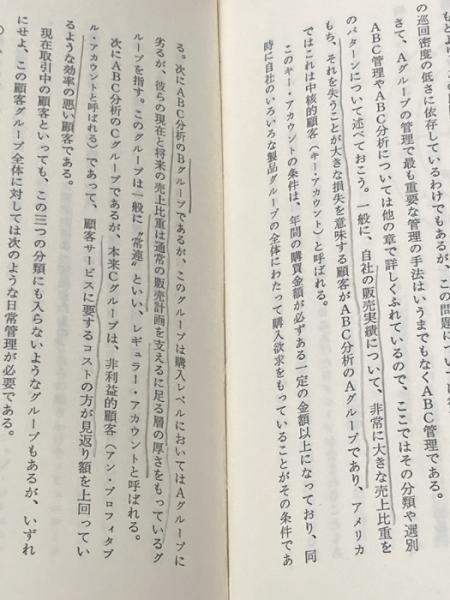 もとより、この
の巡回密度の低さに依存しているわけでもあるが、この問題に
さて、Aグループの管理で最も重要な管理の手法はいうまでもなくABC管理である。
ABC管理やABC分析については他の章で詳しくふれているので、ここではその分類や選別
のパターンについて述べておこう。一般に、自社の販売実績について、非常に大きな売上比重を
もち、それを失うことが大きな損失を意味する顧客がABC分析のAグループであり、アメリカ
ではこれは中核的顧客（キー・アカウント）と呼ばれる。
このキー・アカウントの条件は、年間の購買金額が必ずある一定の金額以上になっており、同
時に自社のいろいろな製品グループの全体にわたって購入欲求をもっていることがその条件であ
る。次にABC分析のBグループであるが、このグループは購入レベルにおいてはAグループに
劣るが、彼らの現在と将来の売上比重は通常の販売計画を支えるに足る層の厚さをもっているグ
ループを指す。このグループは一般に〝常連〟といい、レギュラー・アカウントと呼ばれる。
次にABC分析のCグループであるが、本来Cグループは、非利益的顧客（アン・プロフィタブ
ル・アカウントと呼ばれる）であって、顧客サービスに要するコストの方が見返り額を上回ってい
るような効率の悪い顧客である。
現在取引中の顧客といっても、この三つの分類にも入らないようなグループもあるが、いずれ
にせよ、この顧客グループ全体に対しては次のような日常管理が必要である。